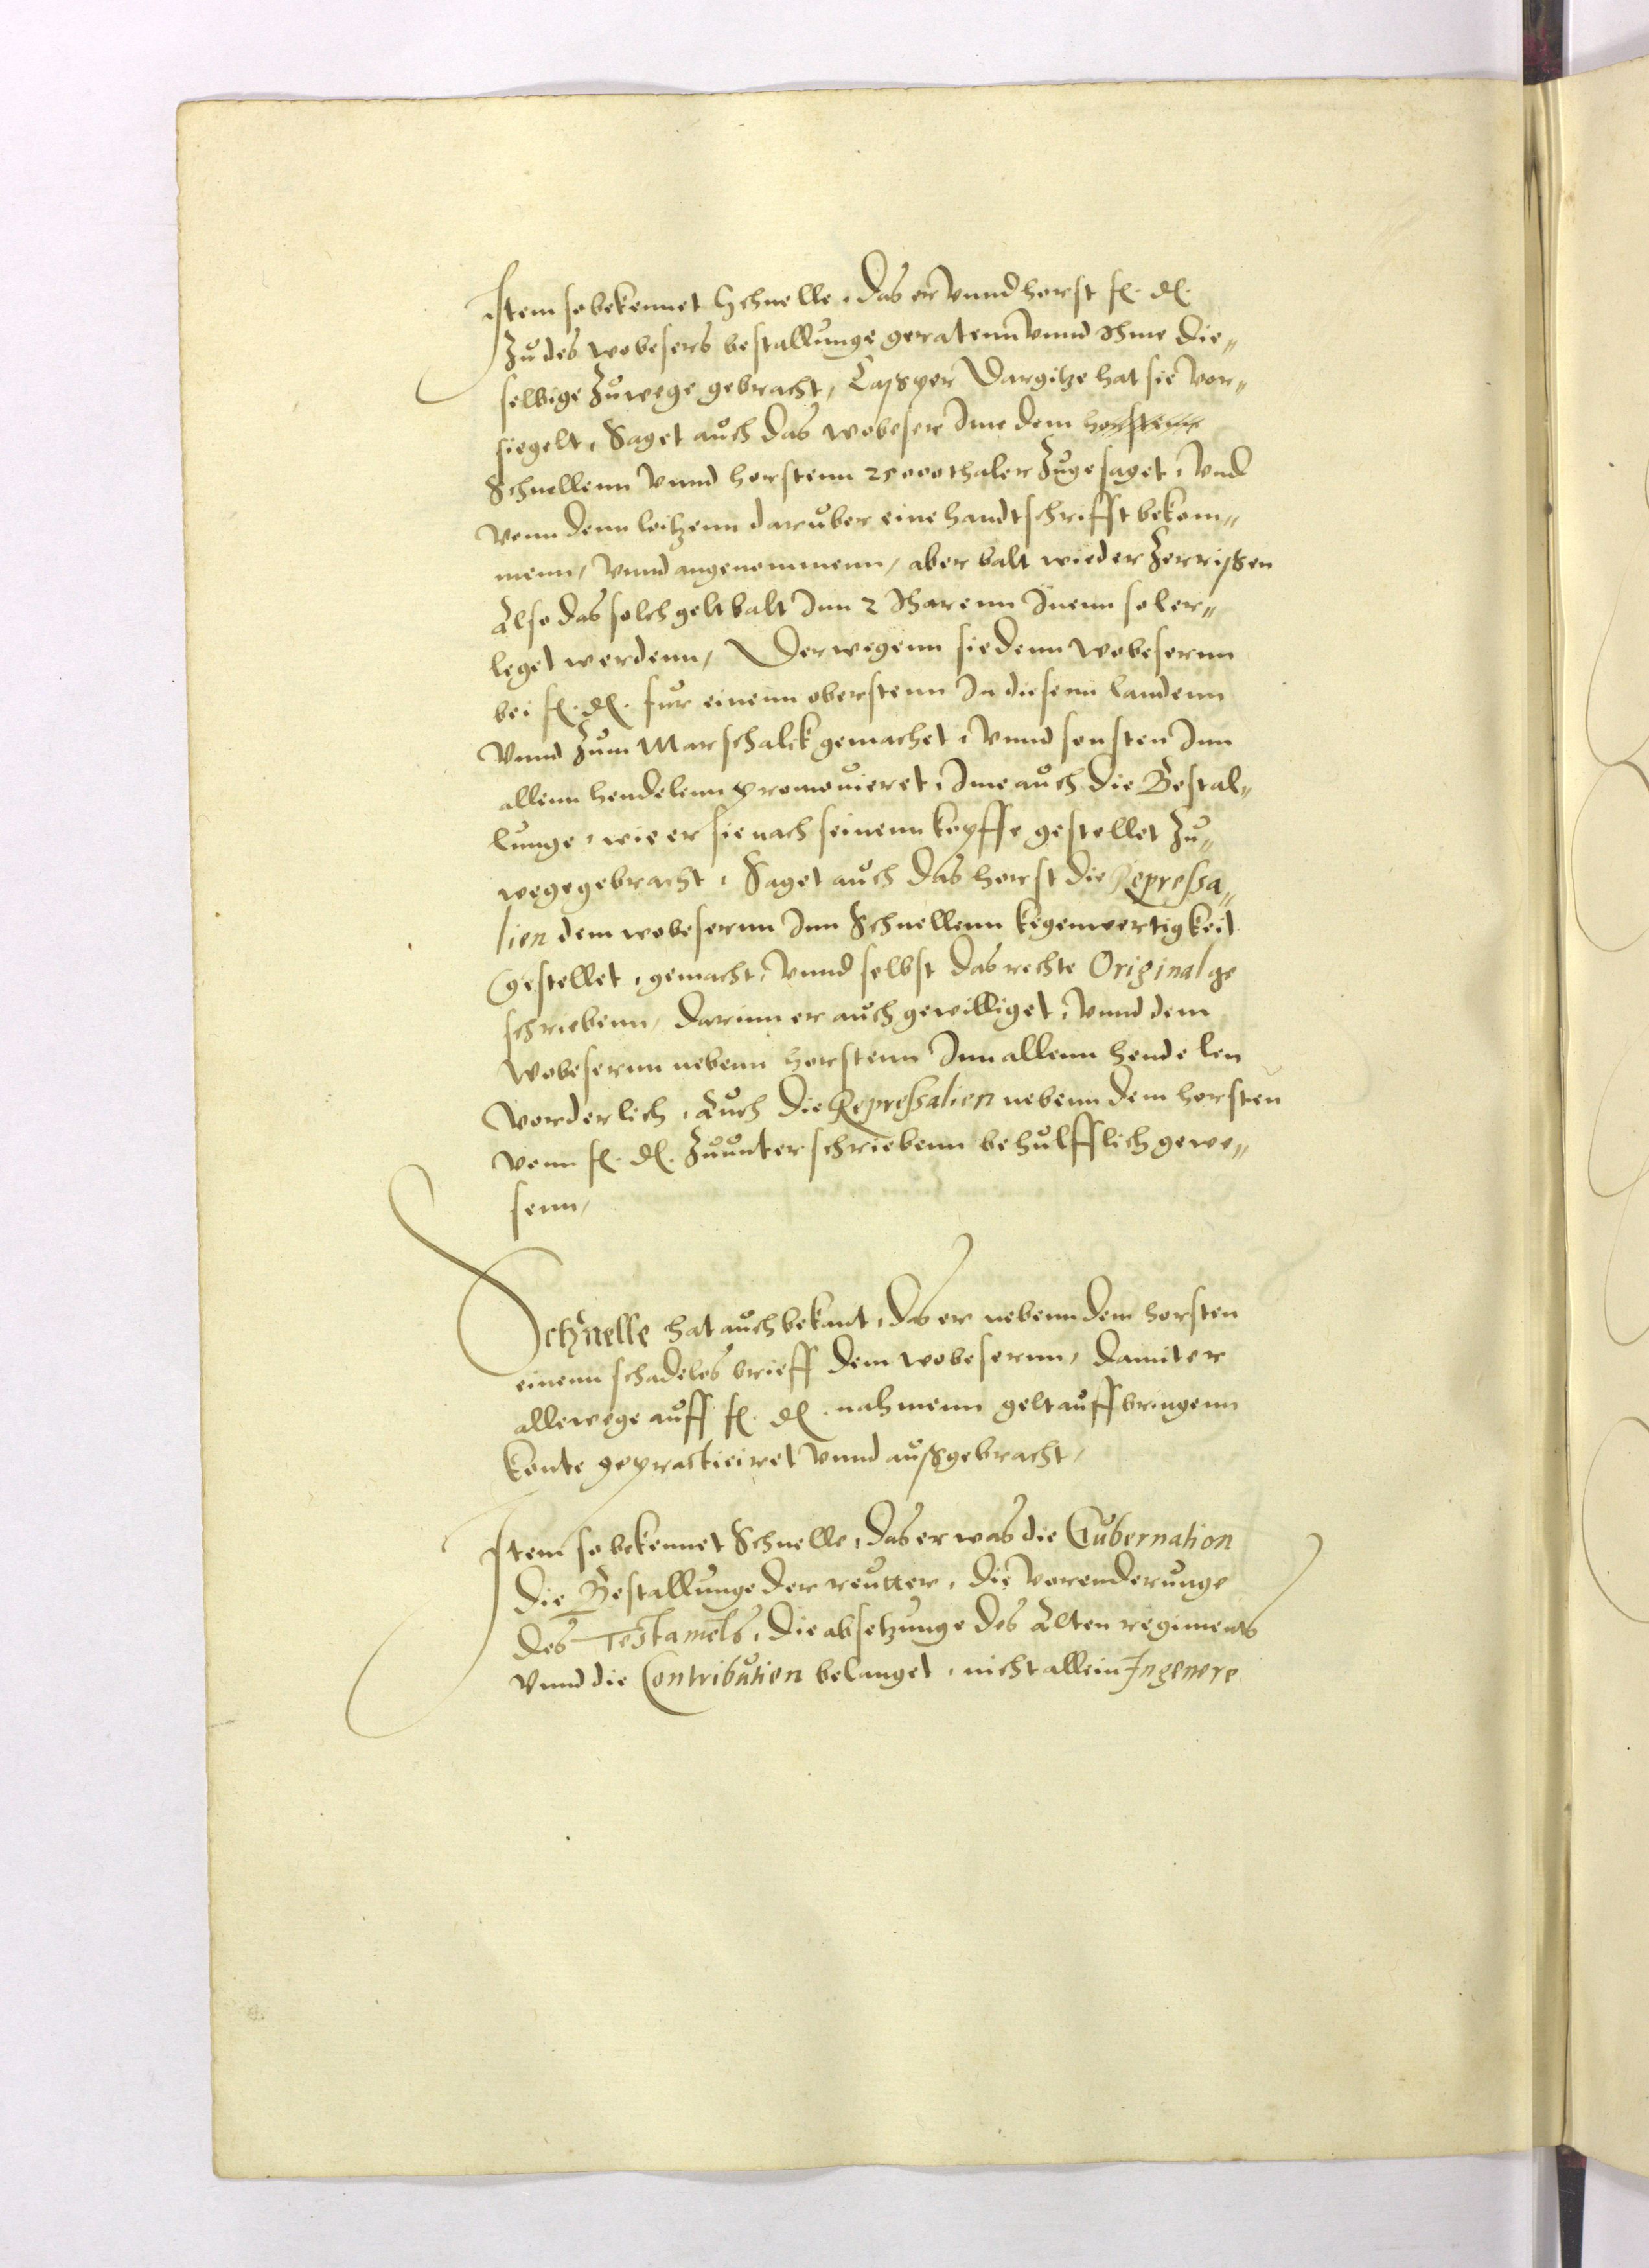 Item so bekennet Schnelle, das er vnnd horst f. d.
Zu des wobesers bestallunge geratenn vnnd Ihme die„
selbige Zuwege gebracht, Casper Dargitze hat sie vor„
siegelt, Saget auch das wobeser Ime dem horstenn
Schnellenn vnnd horstenn 25000 thaler Zugesaget, vnd
vonn denn loitzenn daruber eine handtschrifft bekom„
menn, vnnd angenommenn, aber balt wieder Zerrißen
Also das solch gelt balt Inn 2 Iharenn Inenn sol er„
leget werdenn, Derwegenn sie denn wobesernn
bei f. d. fur einenn oberstenn In diesenn landenn
vnnd Zum Marschalck gemachet, vnnd sonsten Inn
allenn hendelenn promouieret, Ime auch die Bestal„
lunge, wie er sie nach seinenn kopffe gestellet Zu„
wege gebracht, Saget auch das horst die Repressa„
lien dem wobesernn Inn Schnellenn kegenwertigkeit
Gestellet, gemacht, vnnd selbst das rechte Original ge
schriebenn, darinn er auch gewilliget, vnnd dem
wobesernn nebenn horstenn Inn allenn hendelen
vorderlich, Auch die Repressalien nebenn dem horsten
vonn f. d. Zuunterschriebenn behulfflich gewe„
senn,
Schnelle hat auch bekant, das er nebenn dem horsten
einenn schadelos brieff dem wobesernn, damit er
allewege auff f. d. nahmenn gelt auffbringenn
konte gepractieiret vnnd außgebracht,
Item so bekennet Schnelle, das er was die Gubernation
die Bestallunge der reutter, die vorenderunge
des Testamets, die absetzunge des Alten regiments
vnnd die Contribution belanget, nicht allein Ingenere